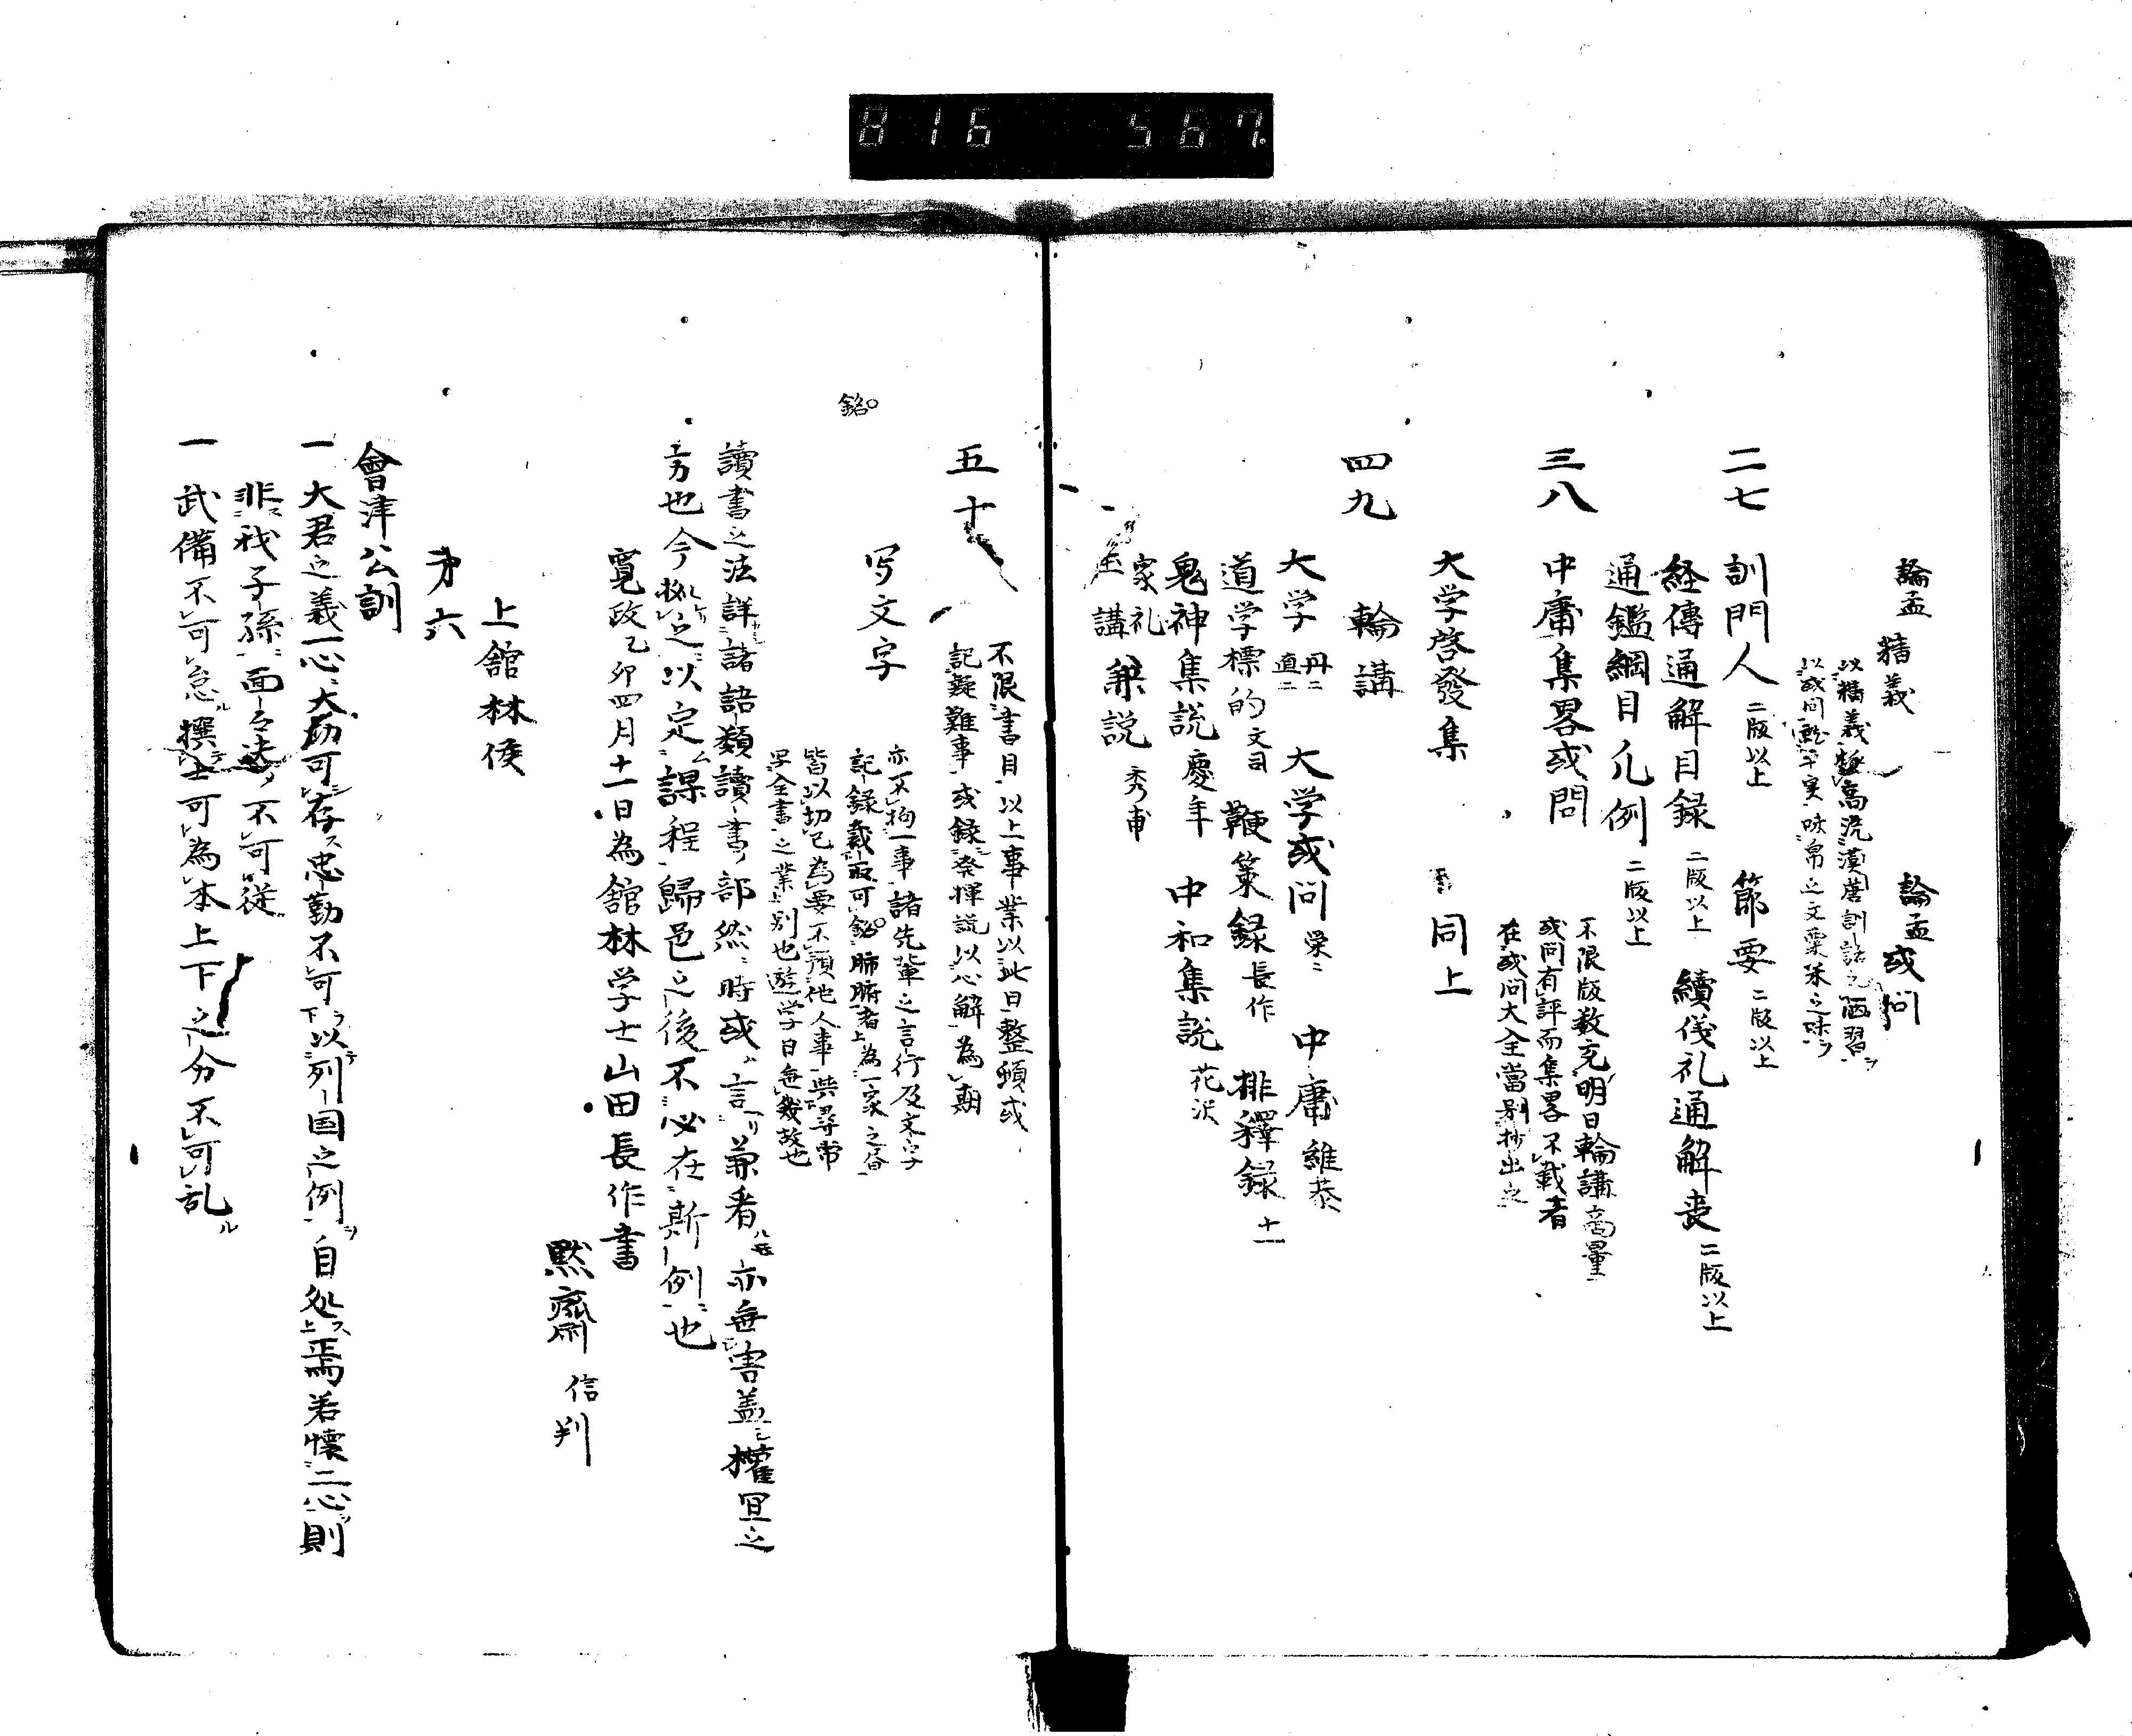 816 567
論孟精義 論孟或問
以精義極高洗漢唐訓詁之陋習ヲ
二七 訓門人 二版以上 節要 二版以上
経傳通解目録 二版以上 續儀礼通解喪 二版以上
通鑑綱目凡例 二版以上
三八 中庸集畧或問
不限版数充明日輪講商量
或問有評而集畧不載者
在或問大全當別抄出之
大学啓發集 同上
四九 輪講
大学 丹二 直二 大学或問 栄二 中庸 維恭
道学標的 文司 鞭策録 長作 排釋録 十一
鬼神集説 慶年 中和集説 花沢
家礼
講兼説 秀甫
五十
不限書目以上事業以此日整頓或
記疑難事或録発揮説以心解為期
写文字
亦不拘一事諸先輩之言行及文字
記録最可銘肺腑者上為一家之
皆以切己為要不預他人事與尋常
写全書之業上別也遊学日無幾故也
銘
讀書之法詳諸語類讀書ノ部然時或ハ言ヿ兼看ハ亦無害蓋權宜之
方也今拠之以定課程歸邑之後不必在斯例也
寛政乙卯四月十一日為舘林学士山田長作書
黙齋 信判
上舘林侯
㐧六
會津公訓
一 大君之義一心大切可存忠勤不可下以列国之例ヲ自処上焉若懐二心則
非我子孫面々決ノ不可従
一 武備不可怠ル撰士可為本上下之分不可乱ル